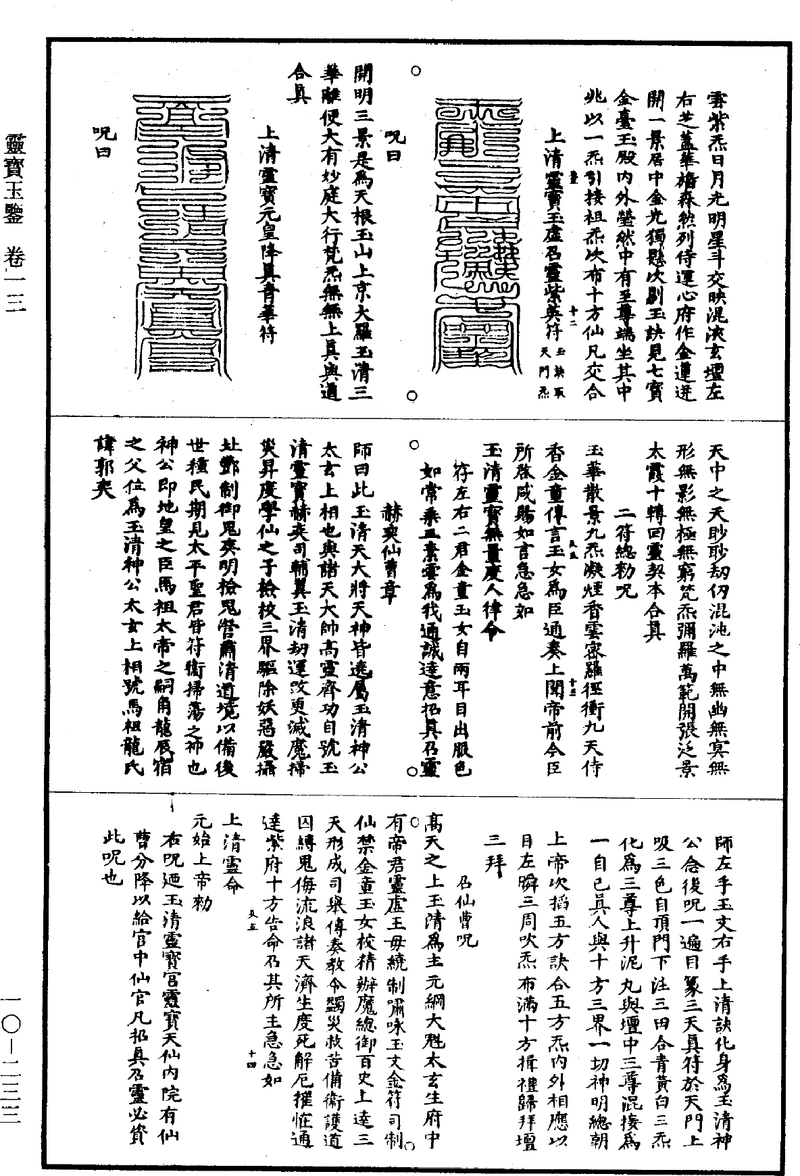 靈寶玉鑒　卷一三
一〇—二三三
雲紫炁日月光明星斗交映混浹玄壇左
右芝蓋華旛森然列侍運心府作金蓮迸
開一景居中金光獨懸次劄玉訣見七寶
金臺玉殿內外瑩然中有至尊端坐其中
兆以一炁引接祖炁次布十方仙凡交合
上清靈寶玉虛召靈紫英符　玉訣取天門炁
十二
呪曰
開明三景是為天根玉山上京大羅玉清三
華離便大有妙庭大行梵炁無無上真與道
合真
上清靈寶元皇降真青華符
呪曰
天中之天眇眇劫仞混沌之中無幽無冥無
形無影無極無窮梵炁彌羅萬範開張泛景
太霞十轉回靈契本合真
二符總勑呪
玉華散景九炁凝煙香雲密羅徑衝九天侍
香金童傳言玉女為臣通奏上聞帝前今臣
所啓咸賜如言急急如
玉清靈寶無量度人律令
符左右二君金童玉女自兩耳目出服色
如常乘五素雲為我通誠達意招真召靈
赫奕仙曹章
師曰此玉清天大將天神皆遶屬玉清神公
太玄上相也與諸天大帥高靈齊功目號玉
清靈寶赫奕司輔翼玉清劫運改更滅魔掃
災昇度學仙之子檢校三界驅除妖惡嚴攝
北酆制御鬼爽明檢鬼營肅清道境以備後
世種民期見太平聖君皆符衛掃蕩之神也
神公即地皇之臣馬祖太帝之嗣角龍辰宿
之父位為玉清神公太玄上相號馬祖龍氏
諱郭奕
師左手玉文右手上清訣化身為玉清神
公念後呪一遍目篆三天真符於天門上
吸三色自頂門下注三田合青黃白三炁
化為三尊上升泥丸與壇中三尊混接為
一自己真人與十方三界一切神明總朝
上帝次搯五方訣合五方炁內外相應以
目左瞬三周吹炁布滿十方揖禮歸拜壇
三拜
召仙曹呪
高天之上玉清為主元綱大魁太玄生府中
有帝君靈虛王母統制嘯咏玉文金符司制
仙禁金童玉女校精辦魔總御百史上達三
天形成司舉傳奏教令蠲災救苦備衛護道
囚縛鬼侮流浪諸天濟生度死解厄摧怪通
達紫府十方告命召其所主急急如
十四
上清靈命
元始上帝勑
右呪迺玉清靈寶宮靈寶天仙內院有仙
曹分降以給官中仙官凡招真召靈必資
此呪也